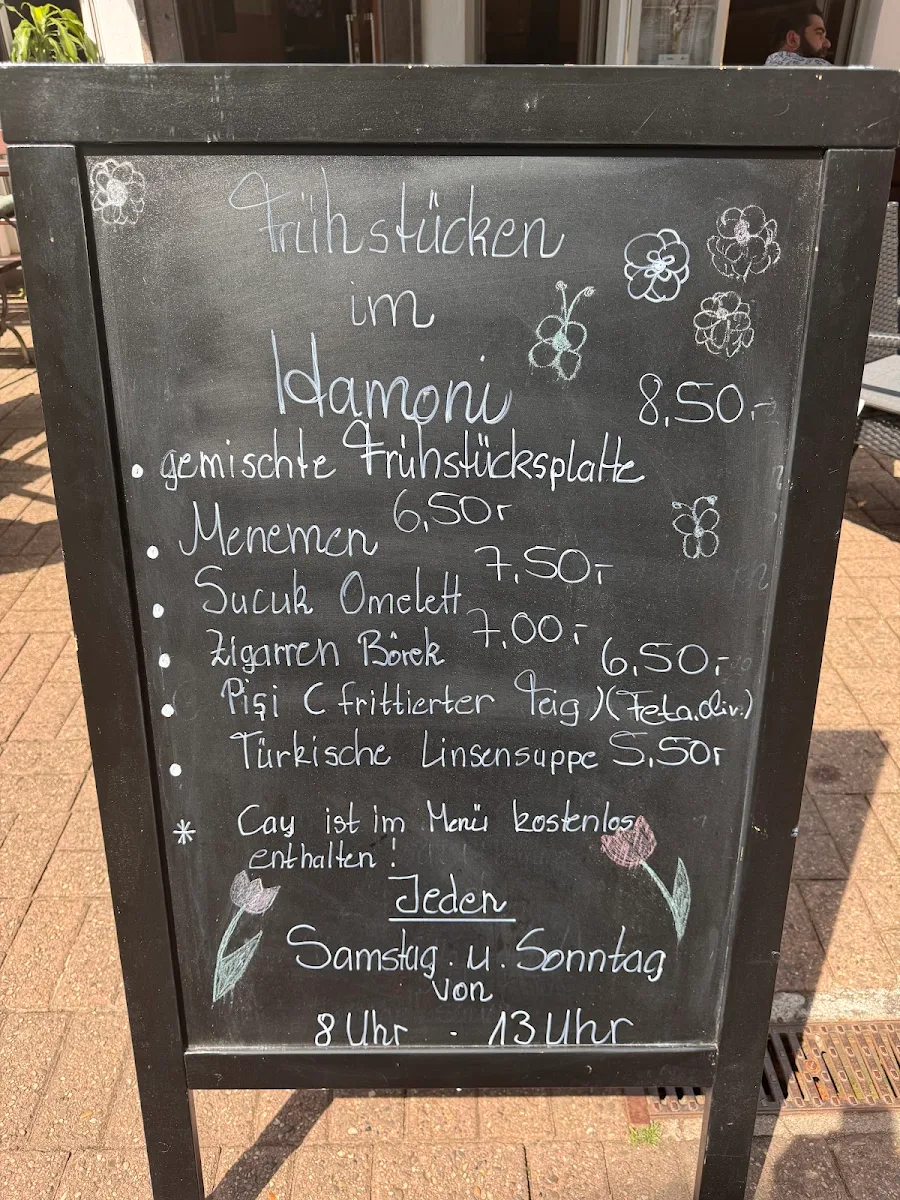 Frühstücken
im
Hamoni
8,50,-
• gemischte Frühstücksplatte
• Menemen 6,50,-
• Sucuk Omelett 7,50,-
• Zigarren Börek 7,00,-
• Pişi (frittierter Teig) (Feta.Oliv.) 6,50,-
• Türkische Linsensuppe 5,50,-
* Cay ist im Menü kostenlos
enthalten!
Jeden
Samstag. u. Sonntag
von
8 Uhr - 13 Uhr